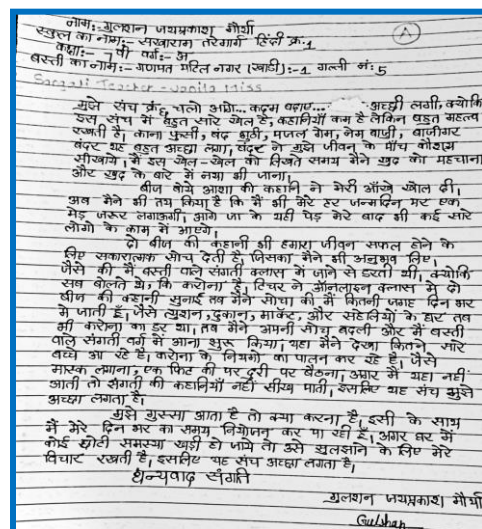 नाम:- गुलशन जयप्रकाश मौर्या
स्कुल का नाम:- सखाराम तरेगार्ग हिंदी क्र:1
कक्षा:- वी वर्ग:- अ
बस्ती का नाम:- गणपत पाटिल नगर (खाडी):-1 गल्ली नं:5
Sangati Teacher - Vanita Miss
A
मुझे संच क्र६, चलो आगे... कदम बढ़ाए... अच्छी लगी, क्योंकि
इस संच में बहुत सारे खेल है, कहानियाँ कम है लेकिन बहुत महत्व
रखती है, काना फुसी, बंद मुठ्ठी, पजल गेम, नेम बाजी, बाजीगर
बंदर यह बहुत अच्छा लगा, बंदर ने मुझे जीवन के पाँच कौशल
सीखाये, मैं इस खेल-खेल को लिखते समय मैंने खुद को पहचाना
और खुद के बारे में नया भी जाना,
बीज बोये आशा की कहानि ने मेरी आँखे खोल दी,
अब मैंने भी तय किया है कि मैं भी मेरे हर जन्मदिन पर एक
पेड़ जरूर लगाऊंगी, आगे जा के यही पेड़ मेरे बाद भी कई सारे
लोगो के काम में आएंगे,
दो बीज की कहानी भी हमारा जीवन सफल होने के
लिए सकारात्मक सोच देती है, जिसका मैंने भी अनुभव लिए,
जैसे की मैं बस्ती वाले संगती क्लास में जाने से डरती थी, क्योंकि
सब बोलते थे, कि करोना है, टिचर ने ऑनलाइन क्लास में दो
बीज की कहानी सुनाई तब मैंने सोचा की मैं कितनी जगह दिन भर
में जाती हूँ, जैसे ट्युशन, दुकान, मार्केट, और सहेलियों के घर तब
भी करोना का डर था, तब मैंने अपनी सोच बदली और मैं बस्ती
वाले संगती वर्ग में आना शुरू किया, यहा मैंने देखा कितने सारे
बच्चे आ रहे है, करोना के नियमो का पालन कर रहे है, जैसे
मास्क लगाना, एक फिट की पर दुरी पर बैठना, अगर मैं यहा नही
आती तो संगती की कहानियाँ नही सीख पाती, इसलिए यह संच मुझे
अच्छा लगता है,
मुझे गुस्सा आता है तो क्या करना है, इसी के साथ
मैं मेरे दिन भर का समय नियोजन कर पा रही हूँ, अगर घर में
कोई छोटी समस्या खड़ी हो जाये तो उसे सुलझाने के लिए मेरे
विचार रखती है, इसलिए यह संच अच्छा लगता है,
धन्यवाद संगति
गुलशन जयप्रकाश मौर्या
Gulshan